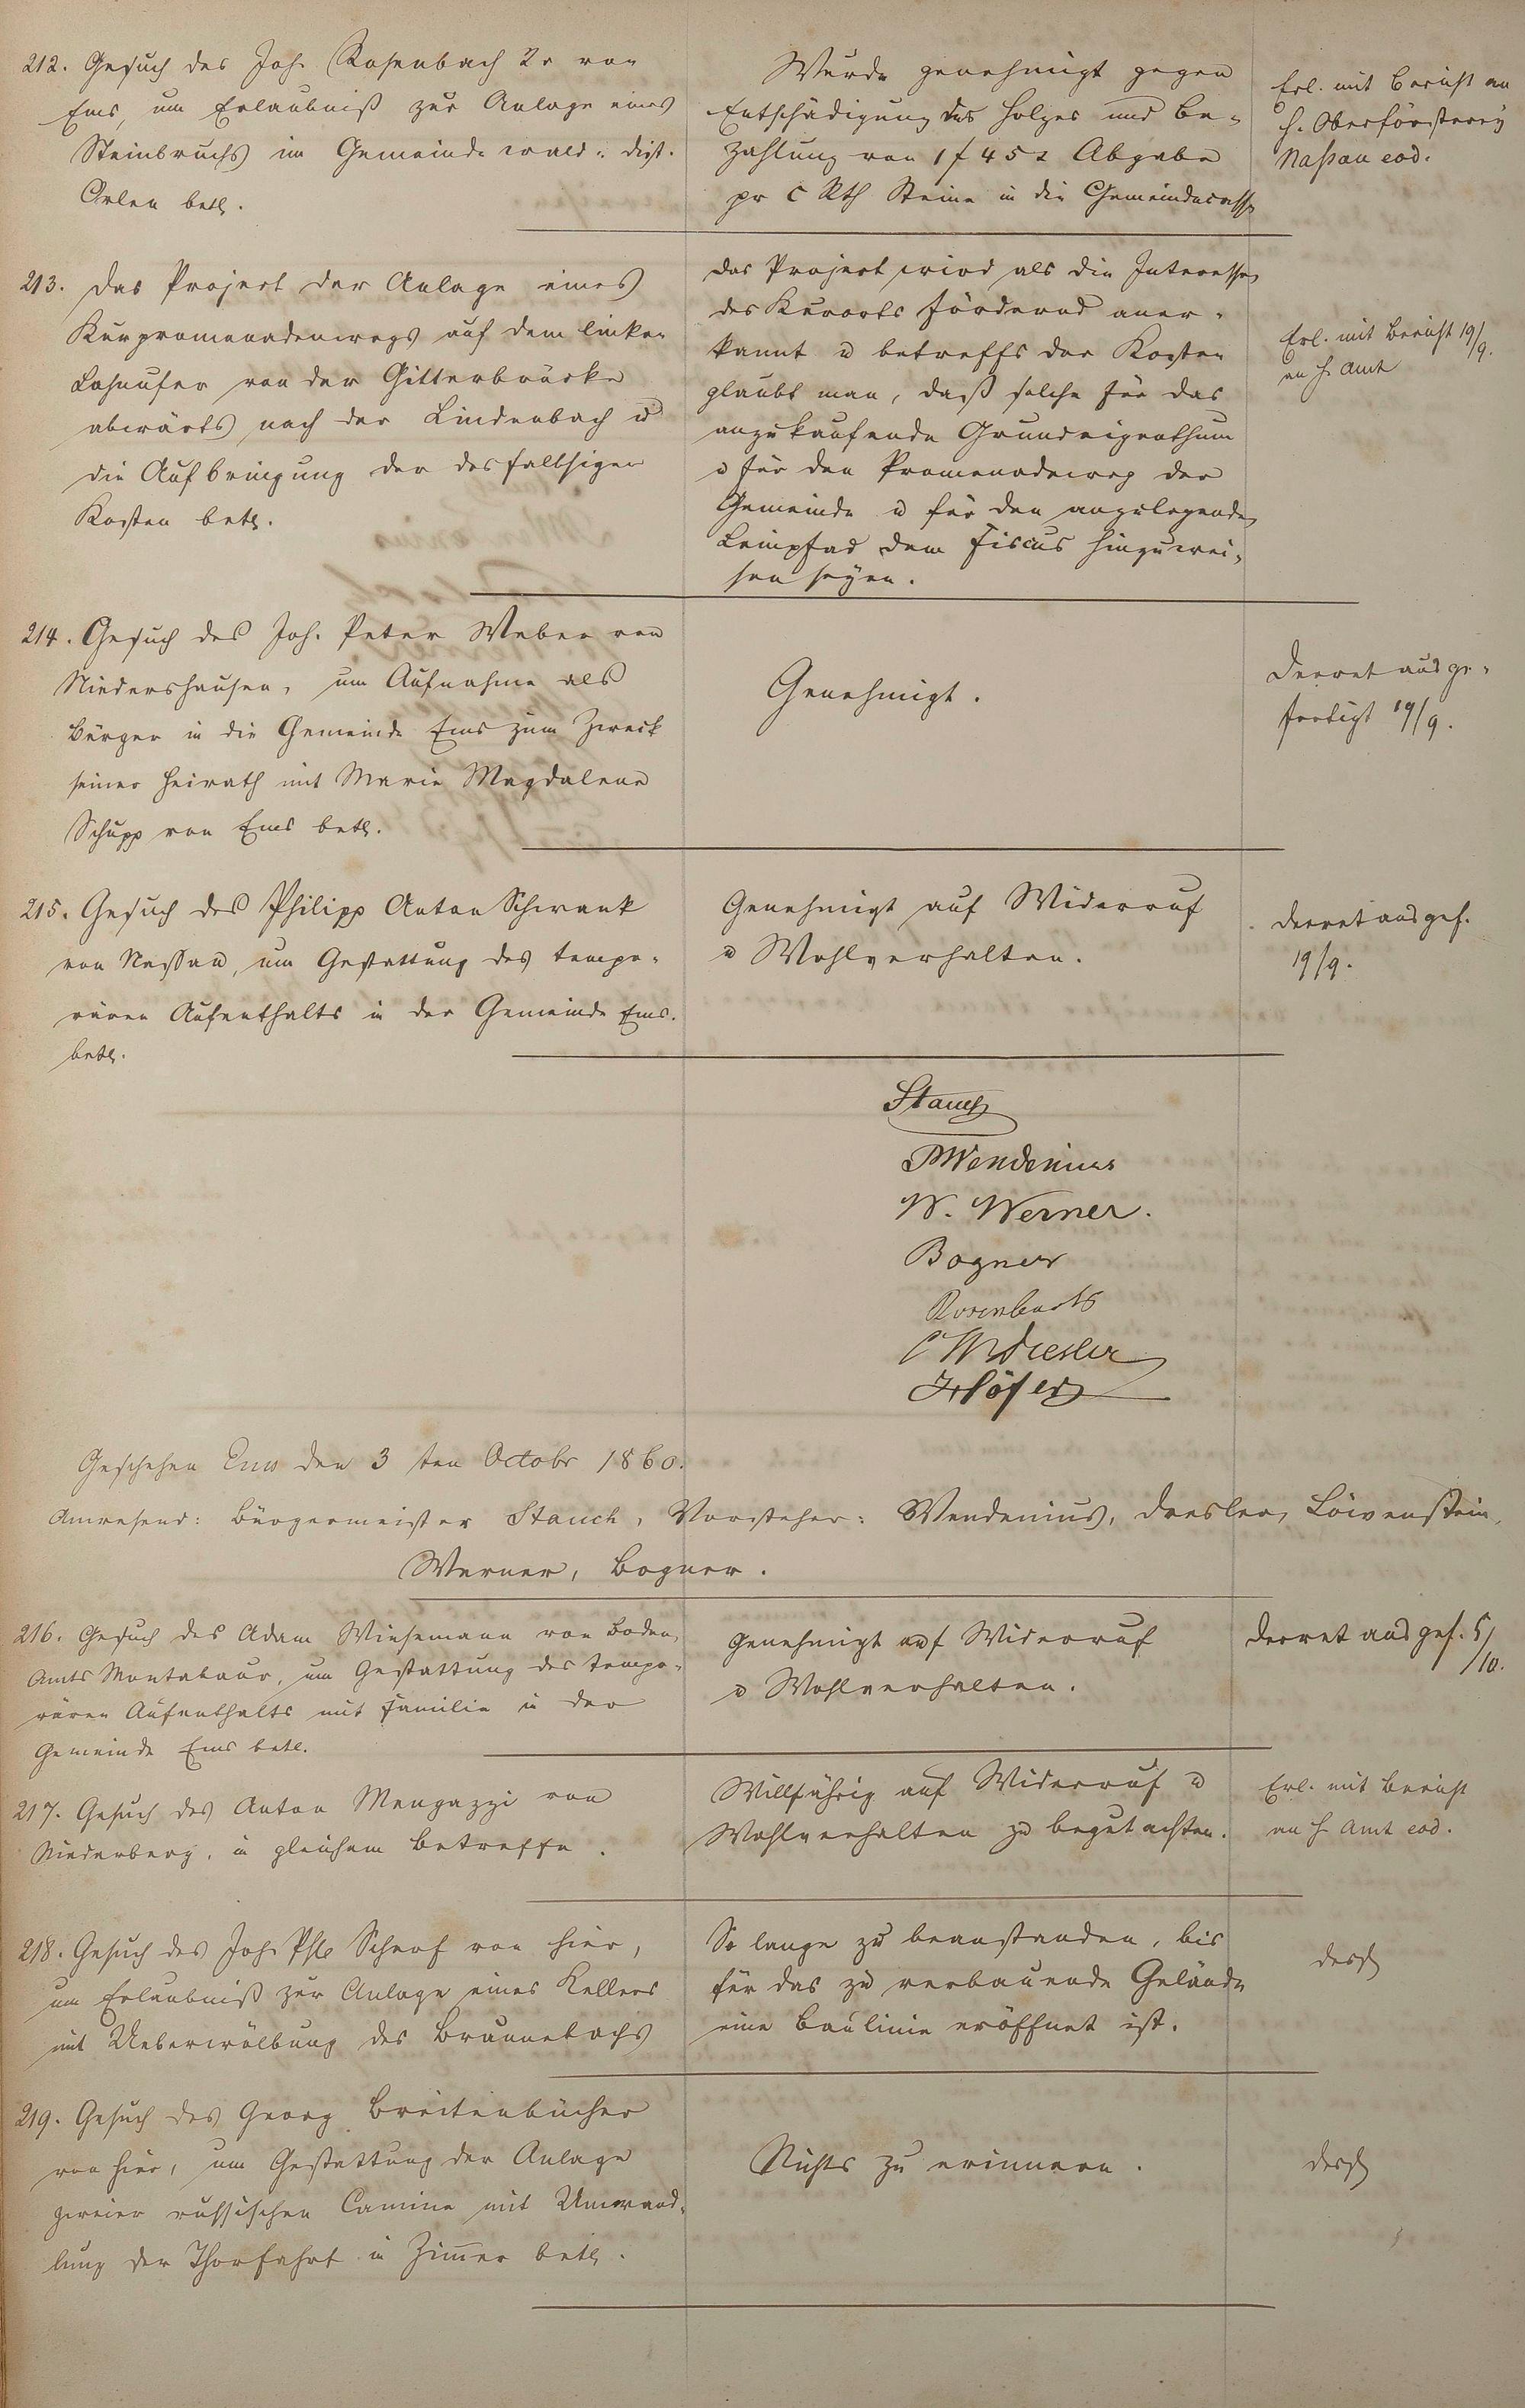 212. Gesuch des Joh. Rosenbach 2r von
Ems, um Erlaubniß zur Anlage eines
Steinbruchs im Gemeindewald, Dist.
Erlen betr.
Wurde genehmigt gegen
Entschädigung des Holzes und Be-
zahlung von 1 f 45 x Abgabe
pr c Rth Steine in die Gemeindecasse
Erl. mit Bericht an
H. Oberförsterey
Naßau eod.
213. Das Project der Anlage eines
Kurpromenadenwegs auf dem linken
Lahnufer von der Gitterbrücke
abwärts nach der Lindenbach u
die Aufbringung der desfallsigen
Kosten betr.
Das Project wird als die Interessen
des Kurorts fördernd aner-
kannt u betreffs der Kosten
glaubt man, daß solche für das
anzukaufende Grundeigenthum
u für den Promenadeweg der
Gemeinde u für den anzulegenden
Leinpfad dem Fiscus hinzuwei-
sen seyen.
Erl. mit Bericht 19/9.
an H. Amt
214. Gesuch des Joh. Peter Weber von
Niedershausen, um Aufnahme als
Bürger in die Gemeinde Ems zum Zweck
seiner Heirath mit Marie Magdalene
Schupp von Ems betr.
Genehmigt.
Decret ausge-
fertigt 19/9.
215. Gesuch des Philipp Anton Schwank
von Nassau, um Gestattung des tempo-
rären Aufenthalts in der Gemeinde Ems.
betr.
Genehmigt auf Widerruf
u Wohlverhalten.
Decret ausgef.
19/9.
Stauch
Wendenius
W. Werner.
Bogner
Rosenbach
Dresler
Höfer
Geschehen Ems den 3ten Octobr 1860.
Anwesend: Bürgermeister Stauch, Vorsteher: Wendenius, Dresler, Löwenstein,
Werner, Bogner.
216. Gesuch des Adam Wiesemann von Boden,
Amts Montabaur, um Gestattung des tempo-
rären Aufenthalts mit Familie in der
Gemeinde Ems betr.
Genehmigt auf Widerruf
u Wohlverhalten.
Decret ausgef. 5/10.
217. Gesuch des Anton Mengazzi von
Niederberg, in gleichem Betreffe.
Willfährig auf Widerruf u
Wohlverhalten zu begutachten.
Erl. mit Bericht
an H. Amt eod.
218. Gesuch des Joh. Phlp Scharf von hier,
um Erlaubniß zur Anlage eines Kellers
mit Ueberwölbung des Braunebachs
So lange zu beanstanden, bis
für das zu verbauende Gelände
eine Baulinie eröffnet ist.
219. Gesuch des Georg Breitenbücher
von hier, um Gestattung der Anlage
zweier russischen Camine mit Umwand-
lung der Thorfahrt in Zimmer betr.
Nichts zu erinnern.